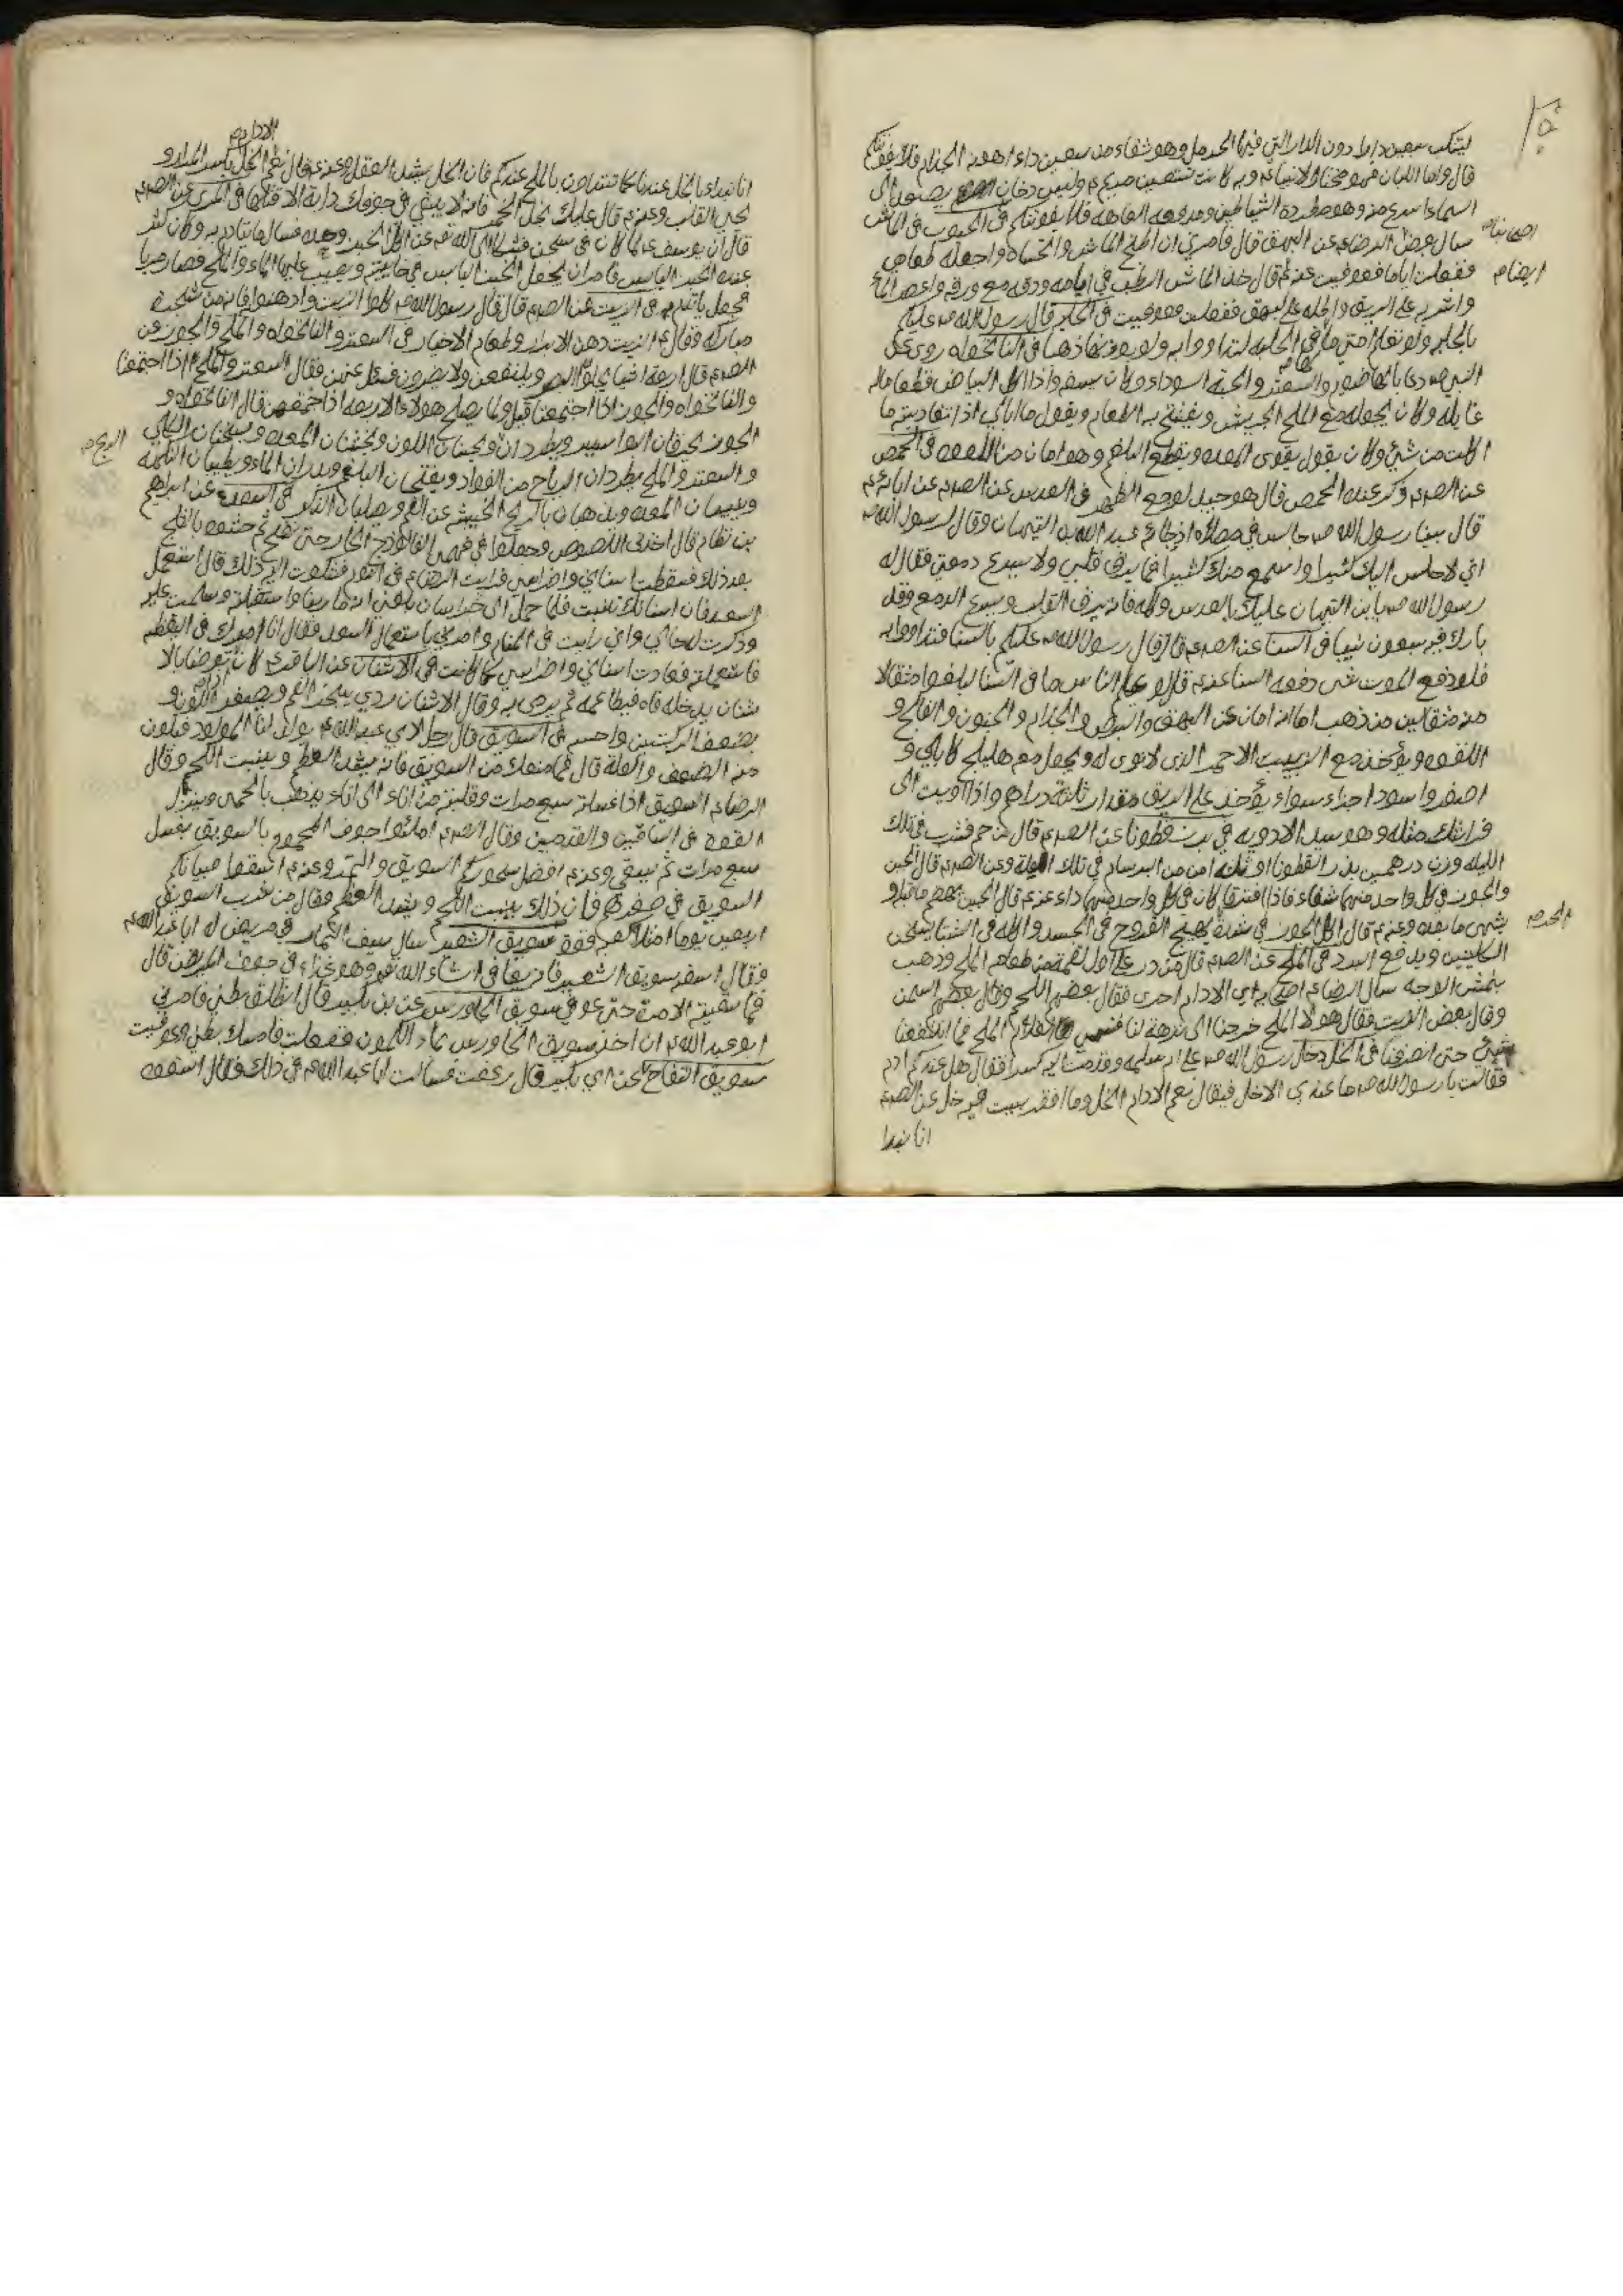 ليتنكب سبعين دارا دون الدار التي فيها الحرمل وهو شفاء من سبعين داء اهونه الجذام فلا يفوتنكم
قال واما اللبان فهو مختار الانبياء م وبه كانت تستعين مريم م وليس دخان يصعد الى
السماء اسرع منه وهو مطردة الشياطين ومدفعة العاهة فلا يفوتنكم في الحبوب في الماش
سال بعض الرضا م عن البهق قال فامرني ان اطبخ الماش واتحساه واجعله طعامي
ففعلت اياما فعوفيت عنه م قال خذ الماش الرطب في ايامه ودقه مع ورقه واعصر الماء
واشربه على الريق واطله على البهق ففعلت فعوفيت في الحلبه قال رسول الله ص عليكم
بالحلبه ولو تعلم امتي ما في الحلبه لتداووا به ولو بوزنها ذهبا في النانخواه روى عن
النبي ص دعا بالهاضوم والسعتر والحبة السوداء وكان يستفه اذا اكل البياض وطعاما له
غائلة وكان يجعله مع الملح الجريش ويفتتح به الطعام ويقول ما ابالي اذا تغاديته ما
اكلت من شئ وكان يقول يقوى المعده ويقطع البلغم وهو امان من اللقوه في الحمص
عن الص م وذكر عنده الحمص قال هو جيد لوجع الظهر في العدس عن الص م عن ابائه م
قال بينا رسول الله ص جالس في مصلاه اذ جاءه عبد الله بن التيهان وقال لرسول الله ص
اني لاجلس اليك كثيرا واسمع منك كثيرا فما يرق قلبي ولا يسرع دمعتي فقال له
رسول الله ص يا بن التيهان عليك بالعدس وكله فانه يرق القلب ويسرع الدمع وقد
بارك فيه سبعون نبيا في السنا عن الص م قال قال رسول الله ص عليكم بالسنا فتداووا به
فلو دفع الموت شئ دفعه السنا عنه م قال لو علم الناس ما في السنا لبلغوا مثقالا
منه مثقالين من ذهب اما انه امان من البهق والبرص والجذام والجنون والفالج و
اللقوه ويؤخذ مع الزبيب الاحمر الذي لا نوى له ويجعل معه هليلج كابلي و
اصفر واسود اجزاء سواء يؤخذ على الريق مقدار ثلثة دراهم واذا اويت الى
فراشك مثله وهو سيد الادوية في بزر قطونا عن الص م قال من حم فشرب في تلك
الليله وزن درهمين بذر القطونا او ثلثه امن من البرسام في تلك الليلة وعن الص م قال الجبن
والجوز في كل واحد منهما شفاء فاذا افترقا كان في كل واحد منهما داء عنه م قال الجبن يهضم ما قبله و
يشهى ما بعده وعنه م قال اكل الجوز في شدة الحر يهيج القروح في الجسد واكله في الشتا يسخن
الكليتين ويدفع البرد في الملح عن الص م قال من ذر على اول لقمة من طعامه الملح ذهب
بنمش الوجه سال الرضا م اصحابه اي الادام احرى فقال بعضهم اللحم وقال بعضهم السمن
وقال بعض الزيت فقال هو لا الملح خرجنا الى نزهة لنا فنسي الغلام الملح فما انتفعنا
بشئ حتى انصرفنا في الخل دخل رسول الله ص على ام سلمه وقدمت اليه كسرا فقال هل عندكم ادم
فقالت يا رسول الله ص ما عندي الا خل فقال نعم الادام الخل وما افقر بيت فيه خل عن الص م
انا نبدا
الادام
انا نبدا بالخل عندنا كما تبتدئون بالملح عندكم فان الخل يشد العقل وعنه م قال نعم الخل يكسر المرار و
يحيي القلب وعنه م قال عليك بخل الخمر فانه لا يبقى في جوفك دابة الا قتلها في المرى عن الص م
قال ان يوسف م لما كان في سجن فشكا الى الله تعم عن اكل الخبز وحده فسال ما يتادم به وكان كثر
عنده الخبز اليابس فامر ان يجعل الخبز اليابس في خابية ويصب عليها الماء والملح فصار مريا
فجعل ياتدم به في الزيت عن الص م قال قال رسول الله ص كلوا الزيت وادهنوا فانه من شجرة
مباركه وقال م الزيت دهن الابرار وطعام الاخيار في السعتر والنانخواه والملح والجوز عن
الص م قال اربعة اشيا يجلو البصر وينفعن ولا يضررن فسئل عنهن فقال السعتر والملح اذا اجتمعا
والنانخواه والجوز اذا اجتمعا قيل ولما يصلح هؤلاء الاربعه اذا اجتمعن قال النانخواه و
الجوز يحرقان البواسير ويطردان الريح ويحسنان اللون ويخشنان المعده ويسخنان الكلي
والسعتر والملح يطردان الرياح من الفواد ويفتحان البلغم ويدران الماء ويطيبان النكهة
ويلينان المعده ويذهبان بالريح الخبيثه عن الفم ويصلبان الذكر في السعد عن ابراهيم
بن نظام قال اخذني اللصوص وجعلوا في فمى الفالوذج الحار حتى نضج ثم حشوه بالثلج
بعد ذلك فسقطت اسناني واضراسي فرايت الرضا م في النوم فشكوت اليه ذلك قال استعمل
السعد فان اسنانك تنبت فلما حمل الى خراسان بلغني انه مار بنا فاستقبلته وسلمت عليه
وذكرت له حالي واني رايته في المنام وامرني باستعمال السعد فقال انا امرك في اليقظه
فاستعملته فعادت اسناني واضراسي كما كانت في الاشنان عن الباقر م كان يتوضا بالا
شنان يدخله فاه فيطاعمه ثم يرمى به وقال الاشنان ردي يبخر الفم ويصفر اللون و
يضعف الركبتين واحبه في السويق قال رجل لابي عبد الله م يولد لنا المولود فيكون
منه الضعف والعلة قال فما منعك من السويق فانه يشد العظم وينبت اللحم وقال
الرضا م السويق اذا غسلته سبع مرات وقلبته من اناء الى اناء يذهب بالحمى وينزل
القوة في الساقين والقدمين وقال الص م املئوا جوف المحموم بالسويق يغسل
سبع مرات ثم يسقى وعنه م افضل سحوركم السويق والتمر وعنه م اسقوا صبيانكم
السويق في صغرهم فان ذلك ينبت اللحم ويشد العظم وقال من شرب السويق
اربعين يوما امتلا كتفه قوة سويق الشعير سال سيف التمار في مريض له ابا عبد الله م
فقال اسقه سويق الشعير فانه يعافى انشاء الله تعم وهو غذاء في جوف المريض قال
فما سقيته الا مرة حتى عوفي سويق الجاورس عن بن بكير قال انطلق بطني فامرني
ابو عبد الله م ان اخذ سويق الجاورس بماء الكمون ففعلت فامسك بطني وعوفيت
سويق التفاح عن ابي بكير قال رعفت فسالت ابا عبد الله م في ذلك فقال اسقوه